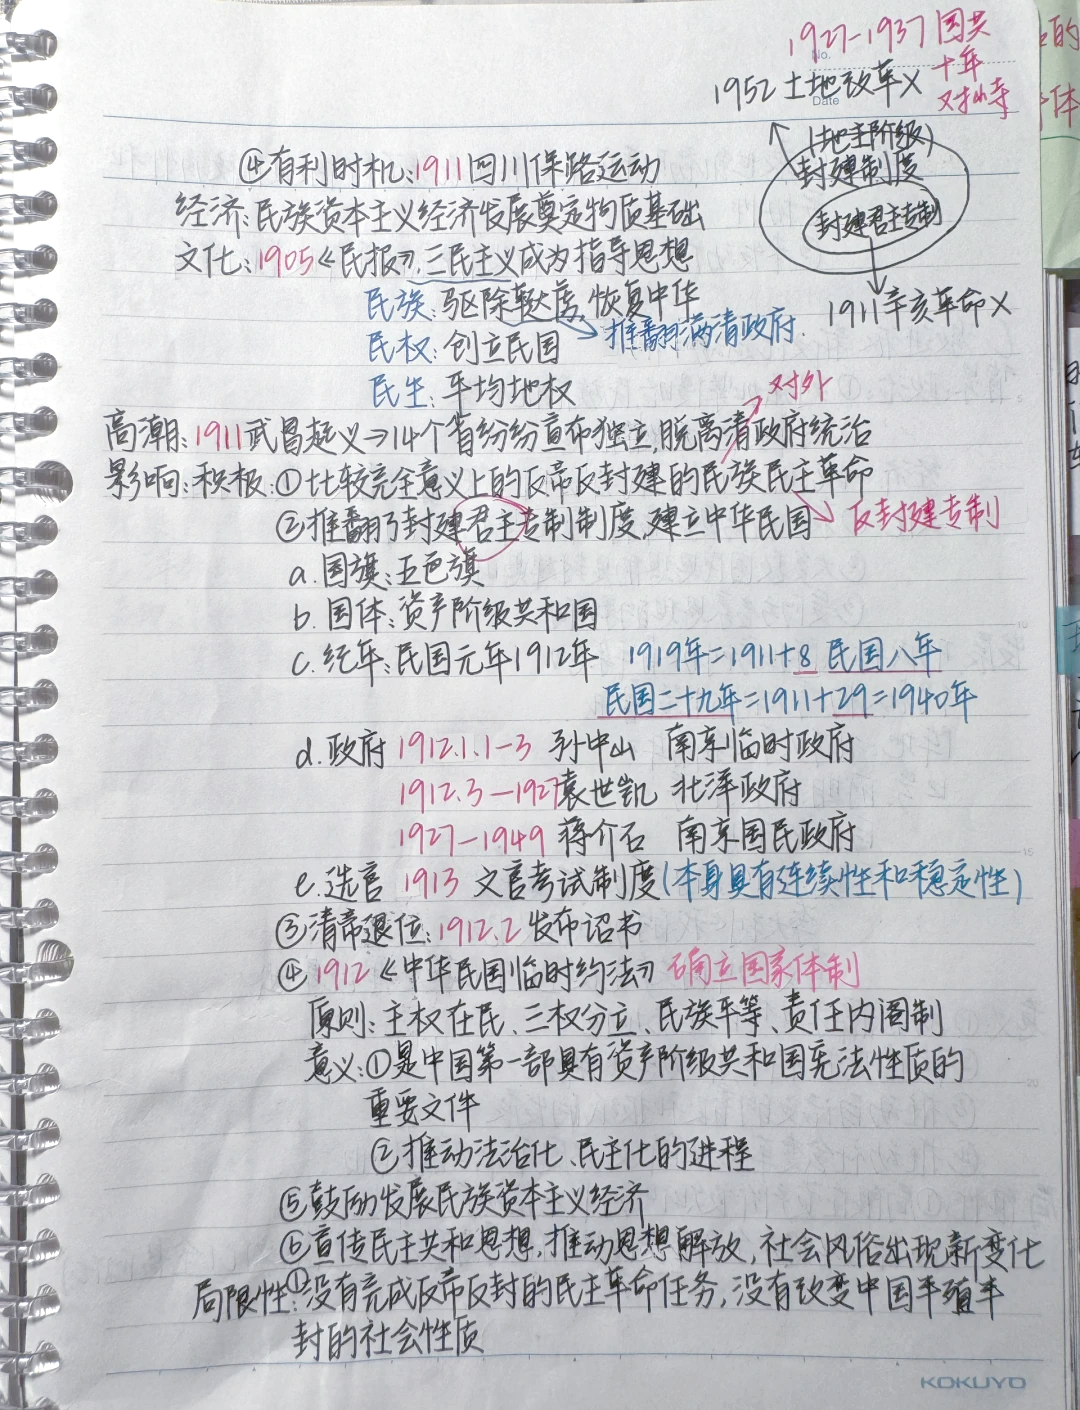 1927-1937 国共
十年
对峙
No.
Date
1952 土地改革 X
(地主阶级)
封建制度
封建君主专制
1911辛亥革命 X
④有利时机:1911四川保路运动
经济:民族资本主义经济发展奠定物质基础
文化:1905《民报》,三民主义成为指导思想
民族:驱除鞑虏,恢复中华
→推翻满清政府.
民权:创立民国
民生:平均地权
对外
高潮:1911武昌起义→14个省纷纷宣布独立,脱离清政府统治
影响:积极:①比较完全意义上的反帝反封建的民族民主革命
②推翻了封建君主专制制度,建立中华民国 反封建专制
a.国旗:五色旗
b.国体:资产阶级共和国
c.纪年:民国元年1912年 1919年=1911+8 民国八年
民国二十九年=1911+29=1940年
d.政府 1912.1.1-3 孙中山 南京临时政府
1912.3-1927袁世凯 北洋政府
1927-1949 蒋介石 南京国民政府
e.选官 1913 文官考试制度(本身具有连续性和稳定性)
③清帝退位:1912.2发布诏书
④1912《中华民国临时约法》确立国家体制
原则:主权在民、三权分立、民族平等、责任内阁制
意义:①是中国第一部具有资产阶级共和国宪法性质的
重要文件
②推动法治化、民主化的进程
⑤鼓励发展民族资本主义经济
⑥宣传民主共和思想,推动思想解放,社会风俗出现新变化
局限性:①没有完成反帝反封的民主革命任务,没有改变中国半殖半
封的社会性质
KOKUYO